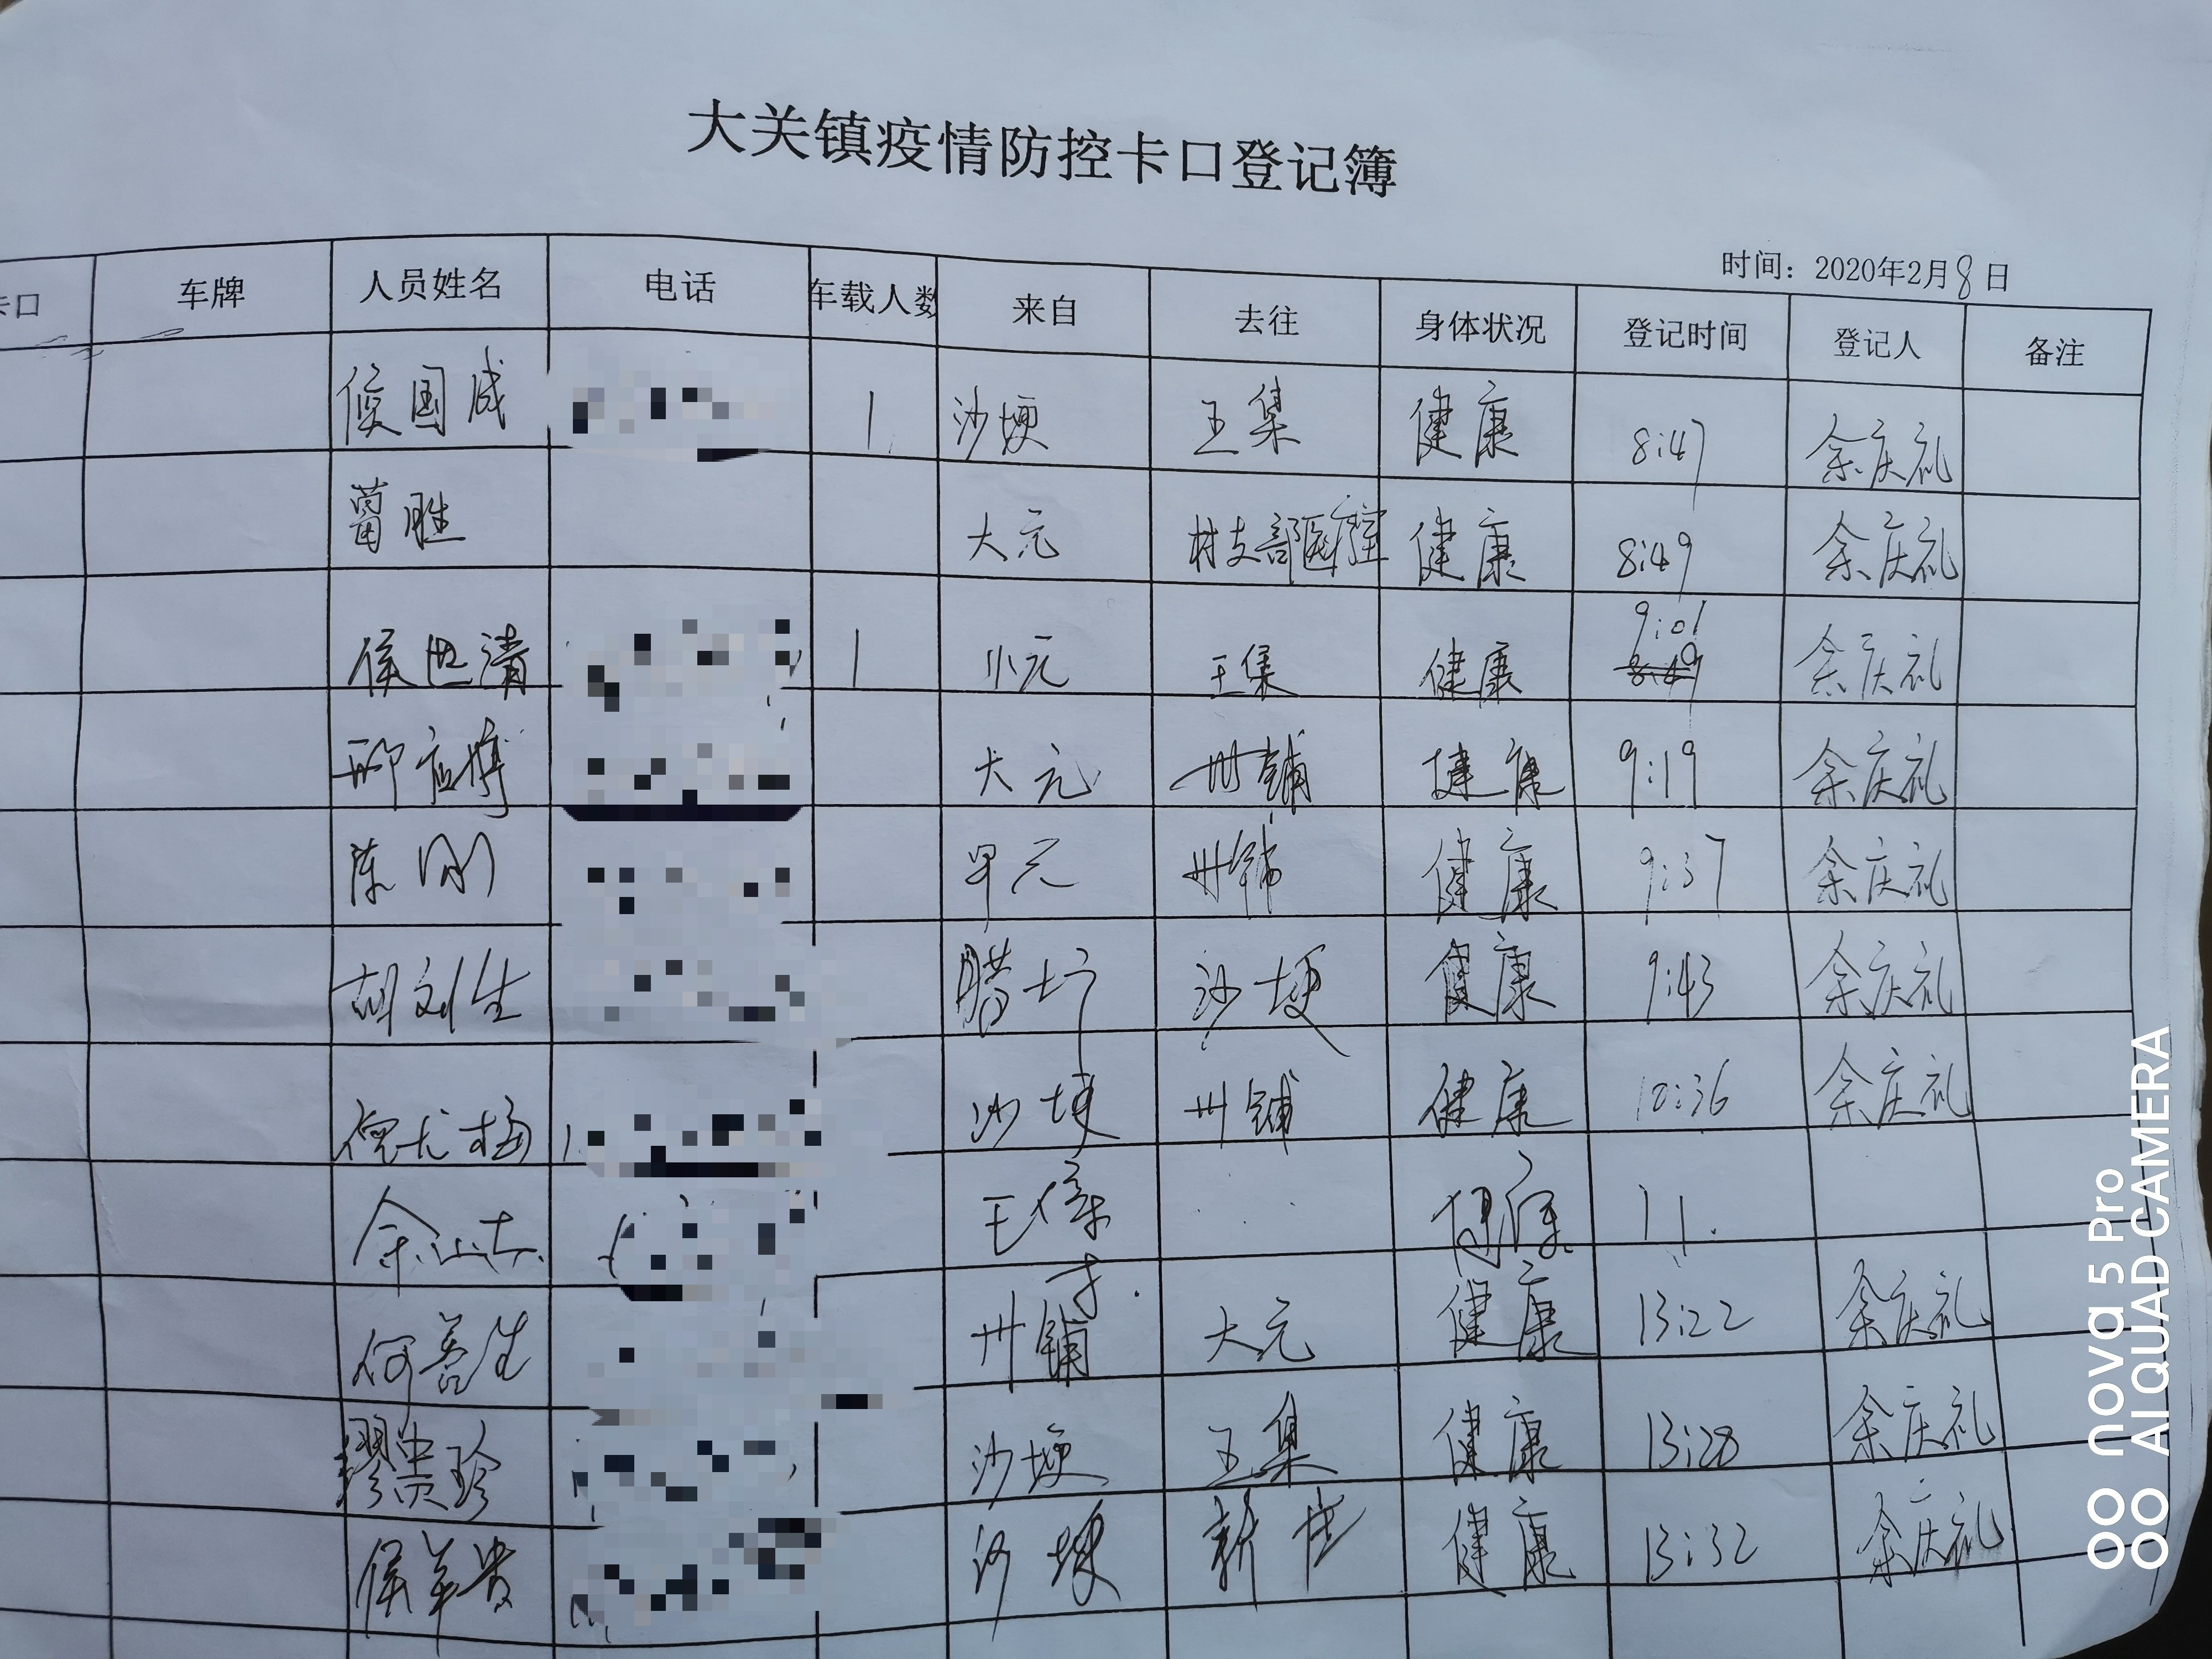 大关镇疫情防控卡口登记簿
时间：2020年2月8日
卡口 车牌 人员姓名 电话 车载人数 来自 去往 身体状况 登记时间 登记人 备注
侯国成 1 沙埂 王集 健康 8:47 余庆礼
胜 大元 村支部医疗室 健康 8:49 余庆礼
侯世清 1 小元 王集 健康 9:01 余庆礼
邢应 大元 卅铺 健康 9:19 余庆礼
陈刚 元 卅铺 健康 9:37 余庆礼
胡刘生 腊 沙埂 健康 9:43 余庆礼
沙埂 卅铺 健康 10:36 余庆礼
余 王 健康 11.
何善生 卅铺 大元 健康 13:22 余庆礼
缪贵珍 沙埂 王集 健康 13:28 余庆礼
侯 贵 沙埂 新 健康 13:32 余庆礼
nova 5 Pro
AI QUAD CAMERA